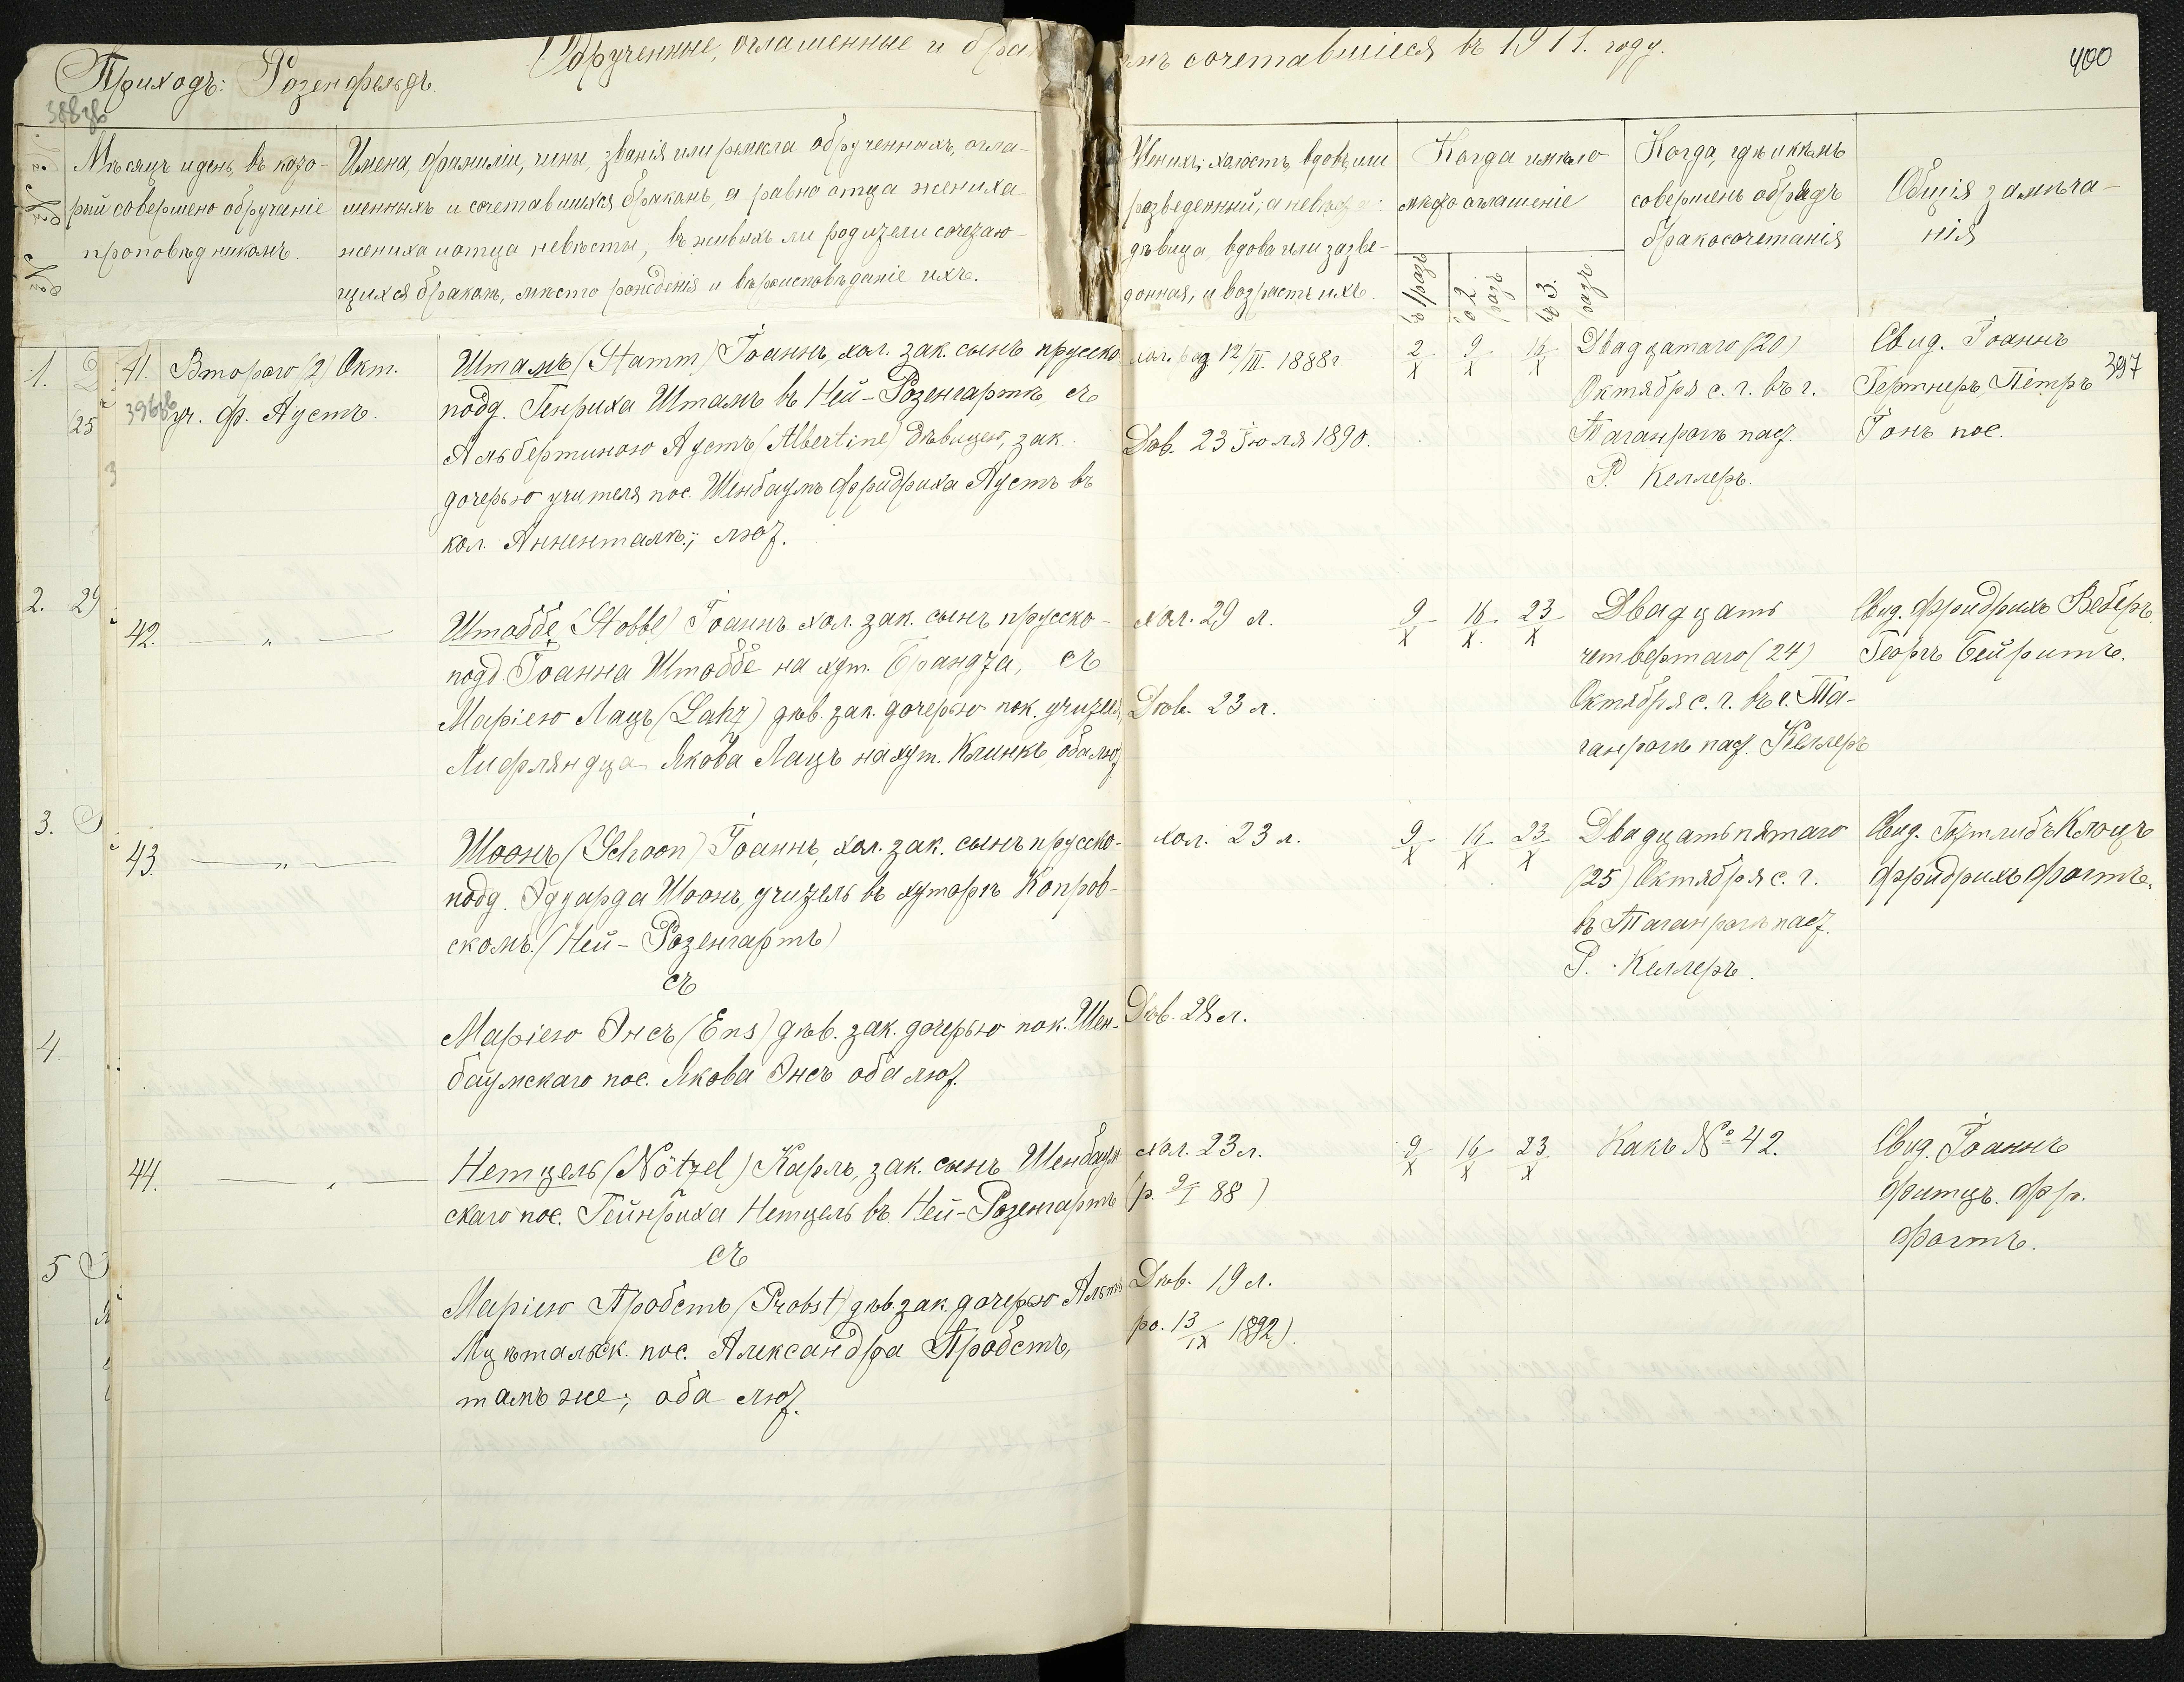 Приходъ: Розенфельдъ.
Обрученные, оглашенные и бра
комъ сочетавшіеся въ 1911. году.
400
388об
Мѣсяцъ и день, въ кото-
рый совершено обрученіе
проповѣдникомъ.
Имена, фамиліи, чины, званія или ремесла обрученныхъ, огла-
шенныхъ и сочетавшихся бракомъ, а равно отца жениха
жениха и отца невѣсты, въ живыхъ ли родители сочетаю-
щихся бракомъ, мѣсто рожденія и вѣроисповѣданіе ихъ.
Женихъ, холостъ, вдовъ, или
разведенный; а невѣста
дѣвица, вдова или разве-
денная; и возрастъ ихъ.
Когда имѣло
мѣсто оглашеніе
въ 1 разъ
во 2 разъ
въ 3. разъ.
Когда, гдѣ и кѣмъ
совершенъ обрядъ
бракосочетанія
Общія замѣча-
нія
1.
2
25
41.
396об
Второго (2) Окт.
уч. Ф. Аустъ.
Штамъ (Stamm) Іоаннъ, хол. зак. сынъ прусско
подд. Генриха Штамъ въ Ней-Розенгартѣ съ
Альбертиною Аустъ (Albertine) дѣвицею, зак.
дочерью учителя пос. Шенбаумъ Фридриха Аустъ въ
кол. Анненталѣ; лют.
хол. род. 12/III. 1888г.
Дѣв. 23 Іюля 1890.
2/X 9/X 16/X
Двадцатаго (20)
Октября с. г. въ г.
Таганрогѣ паст.
Р. Келлеръ.
Свид. Іоаннъ
Гертнеръ, Петръ
Гонъ пос.
397
2. 29
42. " —
Штоббе (Stobbe) Іоаннъ хол. зак. сынъ прусско-
подд. Іоанна Штоббе на хут. Брандта, съ
Маріею Лацъ (Lahz) дѣв. зак. дочерью пок. учителя
Лифляндца Якова Лацъ на хут. Клинкъ, оба лют.
хол. 29 л.
Дѣв. 23 л.
9/X 16/X 23/X
Двадцать
четвертаго (24)
Октября с. г. въ г. Та-
ганрогѣ паст. Келлеръ
Свид. Фридрихъ Веберъ
Георгъ Бейритъ.
3.
43. — " —
Шоонъ (Schoon) Іоаннъ, хол. зак. сынъ прусско-
подд. Эдуарда Шоонъ, учитель въ хуторѣ Копров-
скомъ. (Ней-Розенгартъ)
съ
Маріею Энсъ (Ens) дѣв. зак. дочерью пок. Шен-
баумскаго пос. Якова Энсъ оба лют.
хол. 23 л.
Дѣв. 28 л.
9/X 16/X 23/X
Двадцать пятаго
(25) Октября с. г.
въ Таганрогѣ паст.
Р. Келлеръ.
Свид. Готлибъ Клоцъ
Фридрихъ Фогтъ.
4
44. — " —
Нетцель (Nötzel) Карлъ, зак. сынъ Шенбаум
скаго пос. Гейнриха Нетцель въ Ней-Розенгартѣ
съ
Маріею Пробстъ (Probst) дѣв. зак. дочерью Альтъ
пос. Александра Пробстъ,
тамъ же; оба лют.
хол. 23 л.
(р. 9/I 88)
Дѣв. 19 л.
ро. 13/IX 1892).
9/X 16/X 23/X
Какъ № 42.
Свид. Іоаннъ
Фитцъ. Фр.
Фогтъ.
5